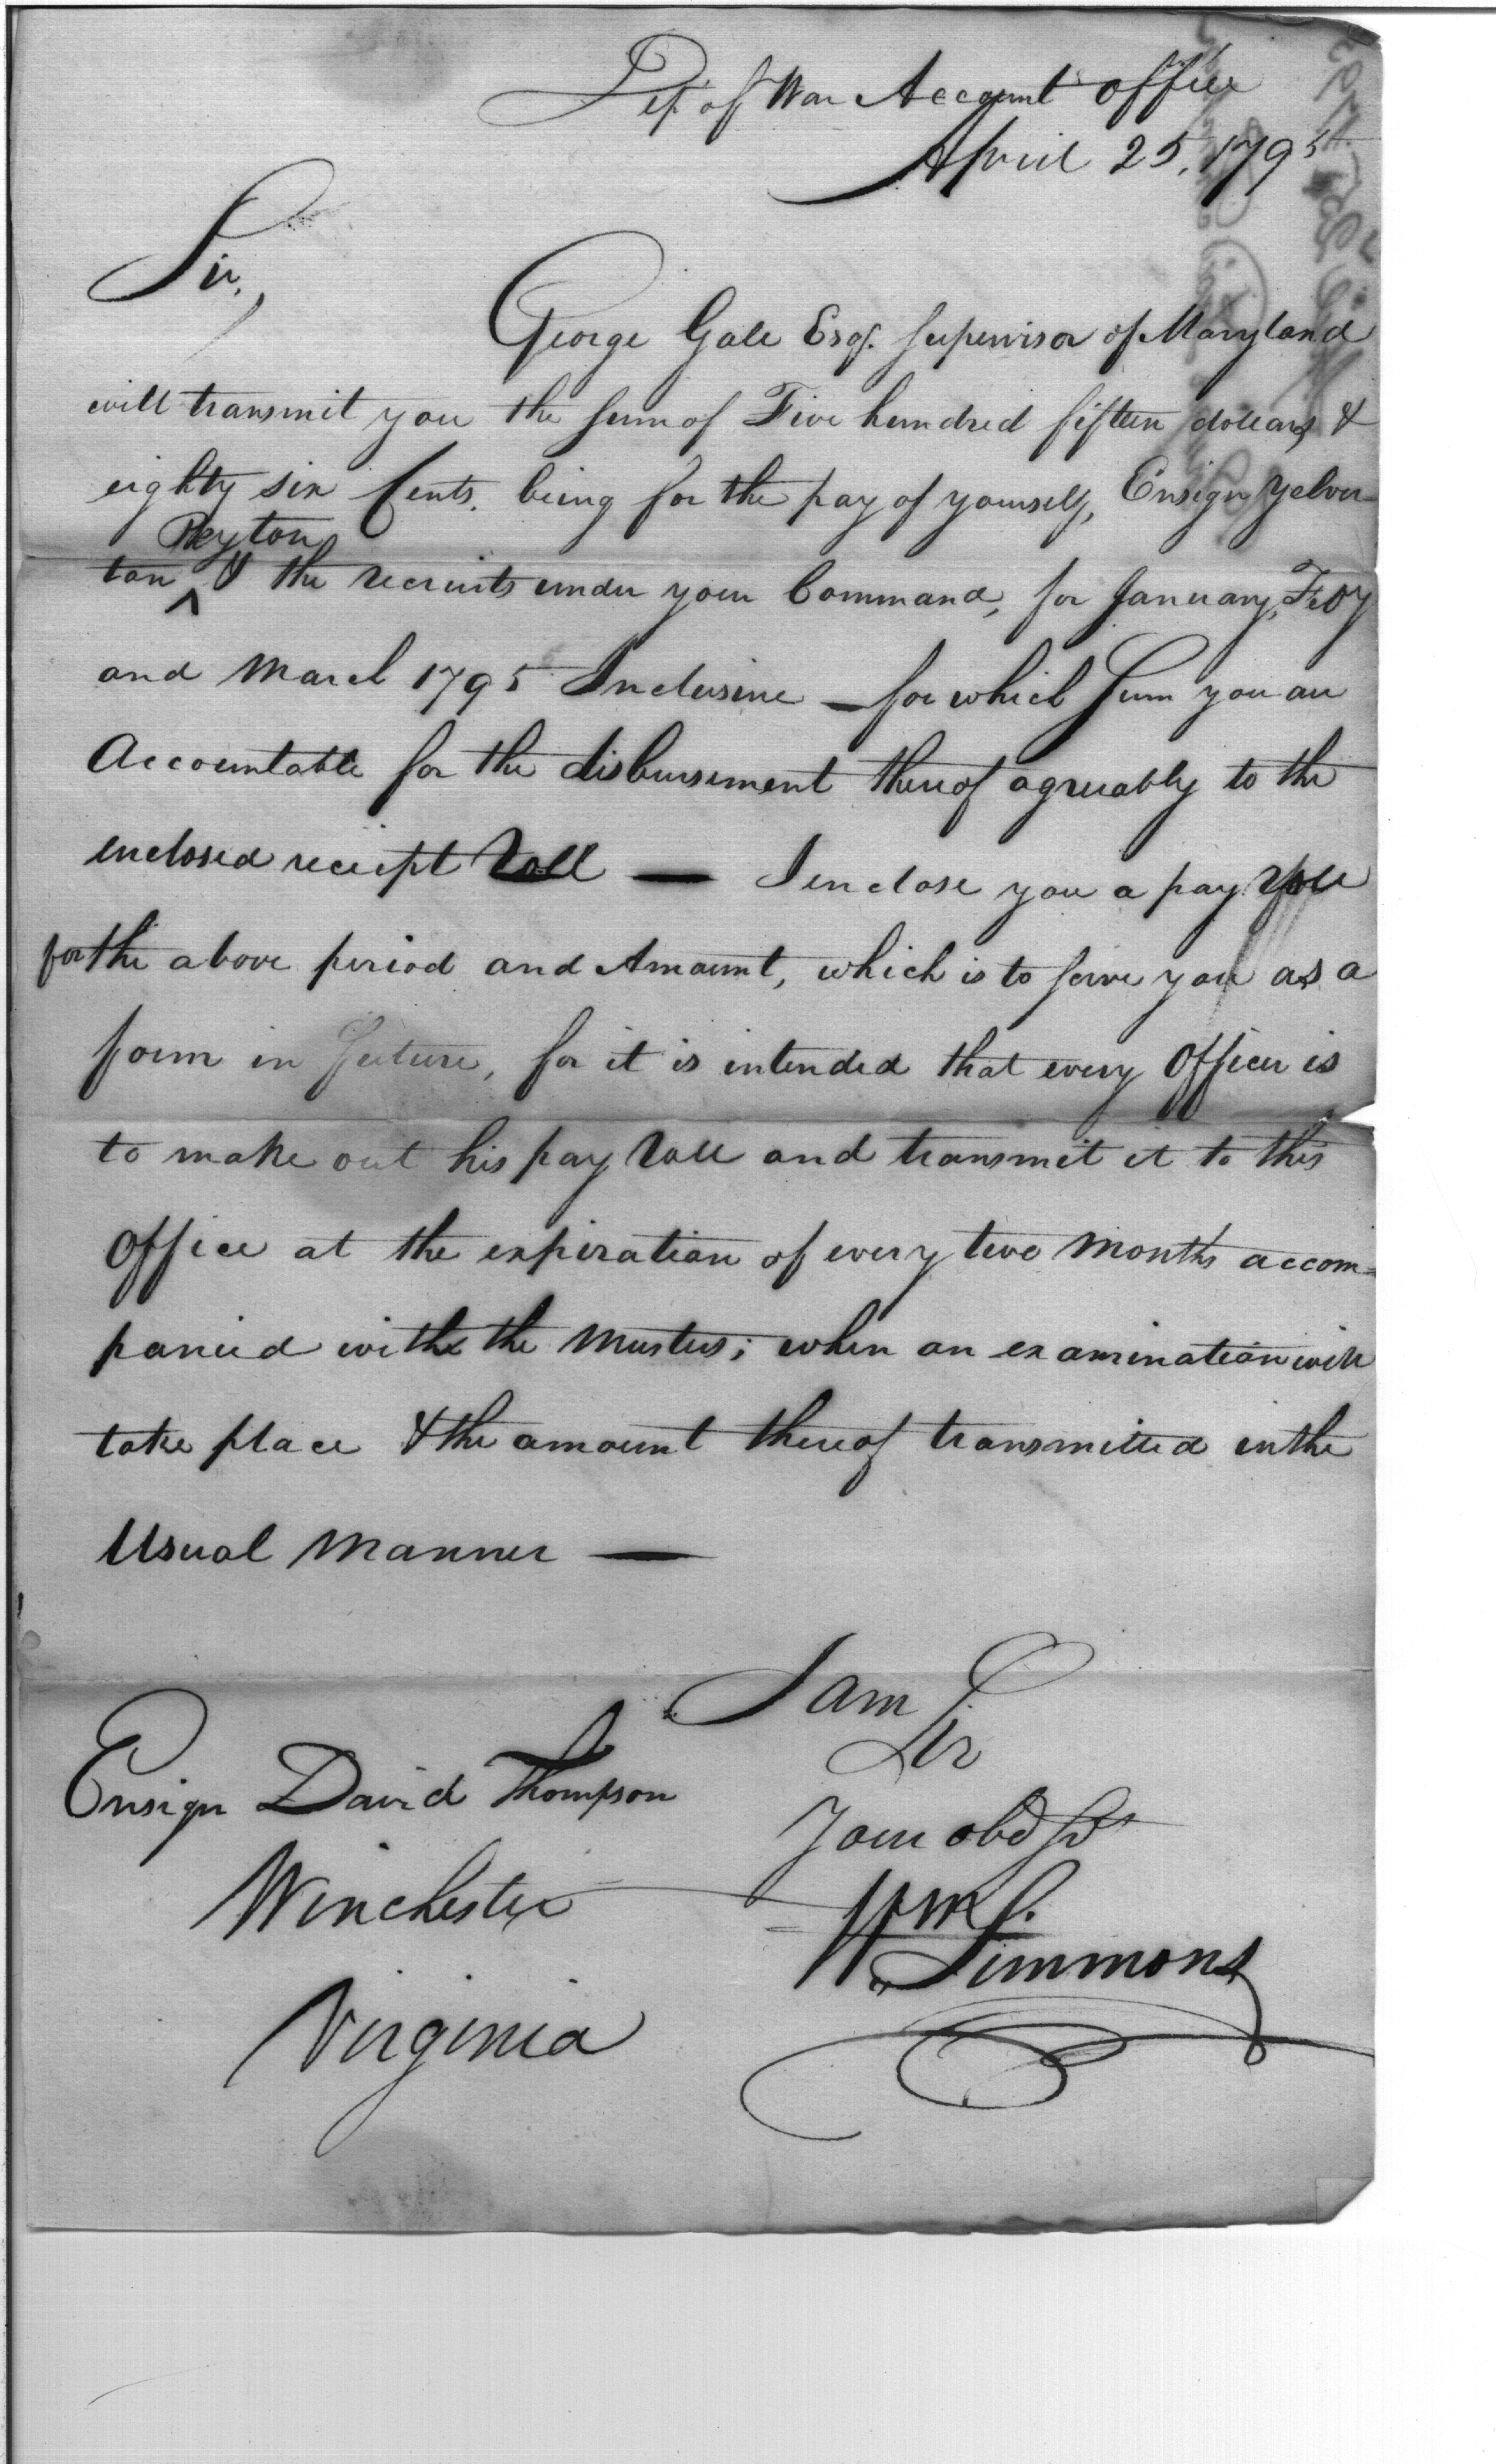 Dep. of War Account office
April 25, 1795
Sir,
George Gale Esqr. Supervisor of Maryland
will transmit you the sum of Five hundred fifteen dollars &
eighty six Cents. being for the pay of yourself, Ensign Yelver
Peyton
ton ^ & the recruits under your Command, for January, Feby
and March 1795 Inclusive — for which Sum you are
Accountable for the disbursement thereof agreeably to the
enclosed receipt Roll — I enclose you a pay Roll
for the above period and Amount, which is to serve you as a
form in future, for it is intended that every Officer is
to make out his pay Roll and transmit it to this
Office at the expiration of every two Months accom=
panied with the Musters; when an examination will
take place & the amount thereof transmitted in the
Usual Manner —
I am
Sir
Ensign David Thompson
Your obd St
Winchester
Wm
Simmons
Virginia